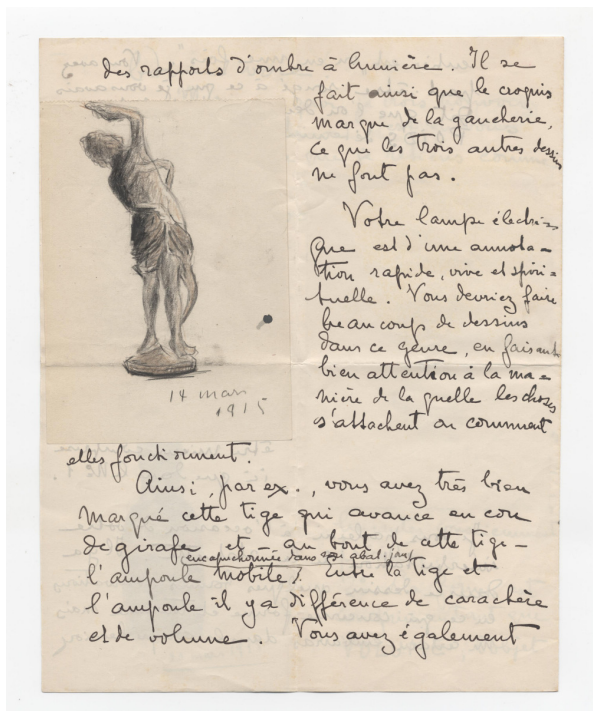 des rapports d'ombre à lumière. Il se
fait ainsi que le croquis
marque de la gaucherie,
ce que les trois autres dessins
ne font pas.
Votre lampe électri-
que est d'une annota-
tion rapide, vive et spiri-
tuelle. Vous devriez faire
beaucoup de dessins
dans ce genre, en faisant
bien attention à la ma-
nière de laquelle les choses
s'attachent ou comment
14 mars
1915
elles fonctionnent.
Ainsi, par ex., vous avez très bien
marqué cette tige qui avance en cou
de girafe et au bout de cette tige -
encapuchonnée dans son abat-jour
l'ampoule mobile. Entre la tige et
l'ampoule il y a différence de caractère
et de volume. Vous avez également